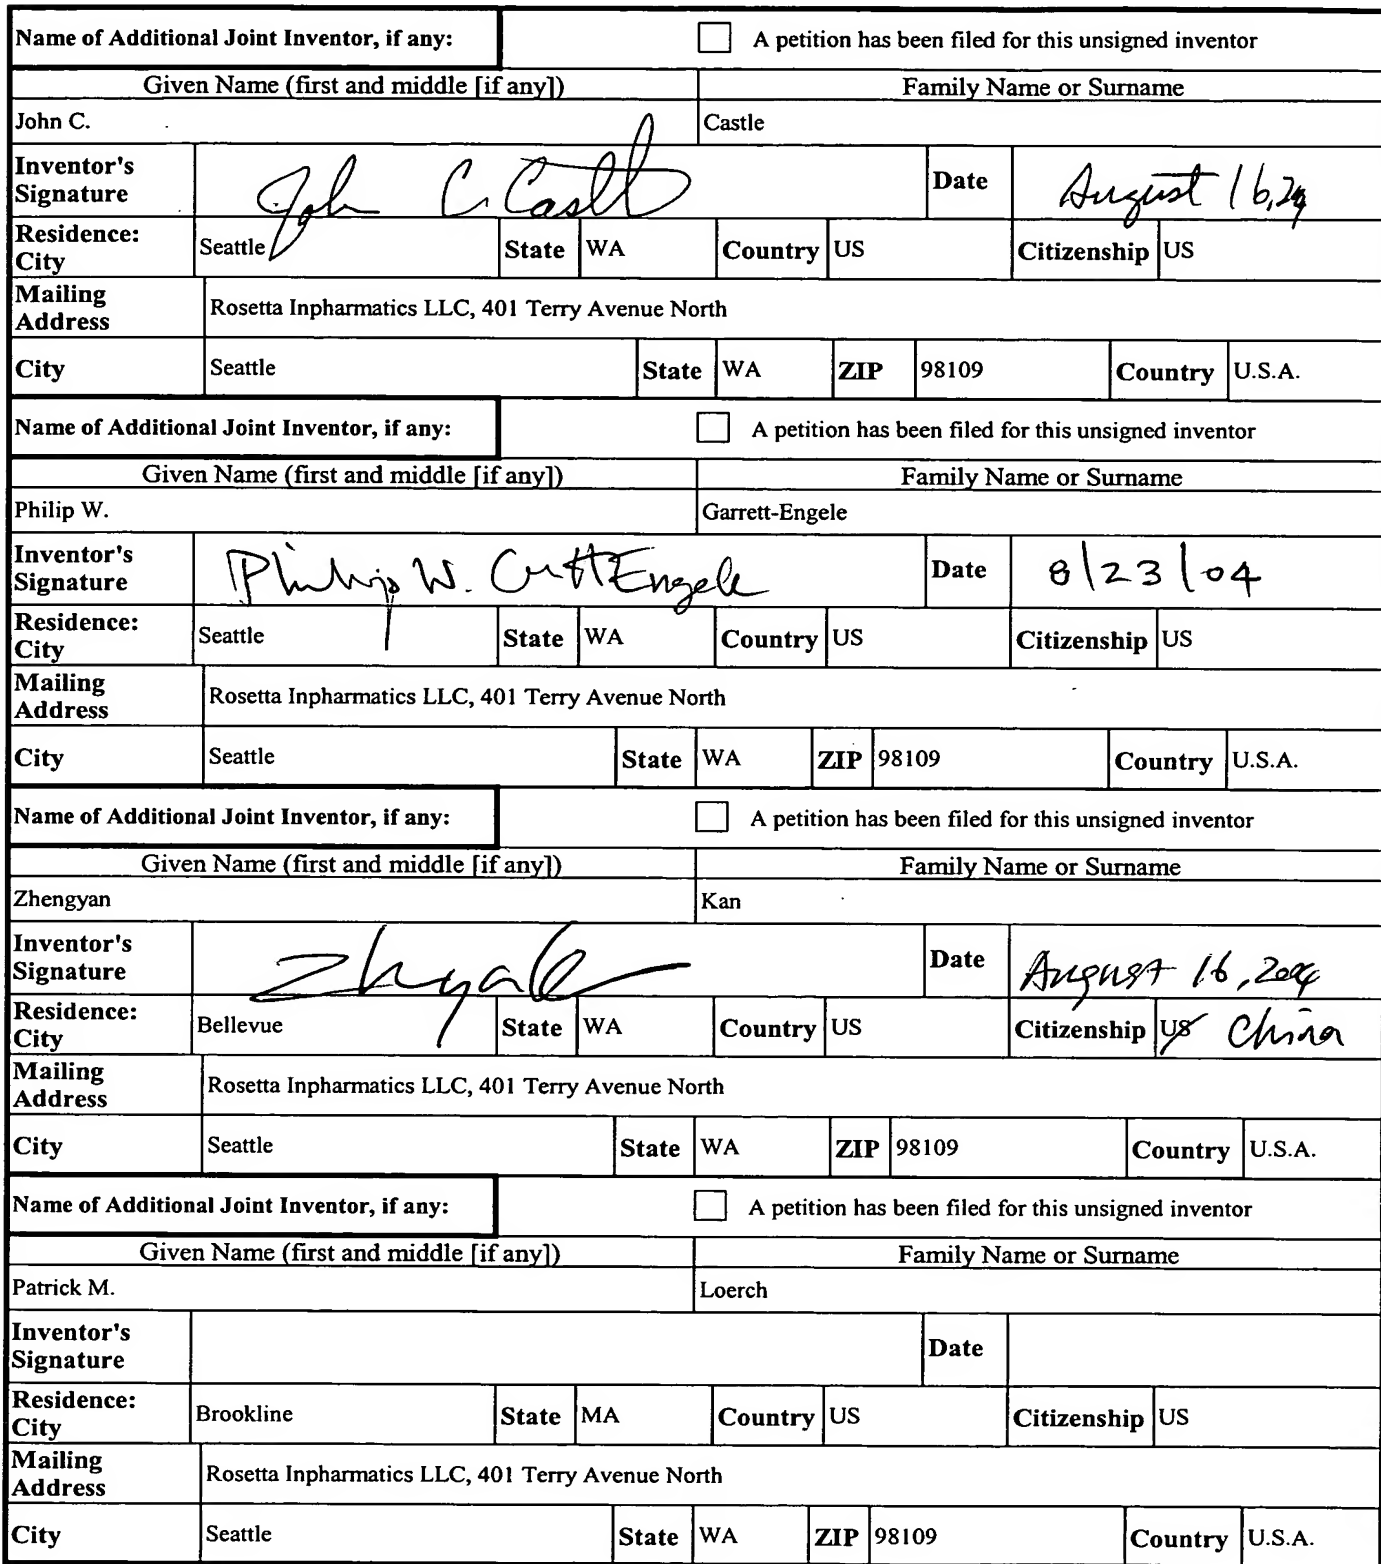 Name of Additional Joint Inventor, if any: A petition has been filed for this unsigned inventor
Given Name (first and middle [if any]) Family Name or Surname
John C. Castle
Inventor's Signature John C. Castle Date August 16,
Residence: City Seattle State WA Country US Citizenship US
Mailing Address Rosetta Inpharmatics LLC, 401 Terry Avenue North
City Seattle State WA ZIP 98109 Country U.S.A.
Name of Additional Joint Inventor, if any: A petition has been filed for this unsigned inventor
Given Name (first and middle [if any]) Family Name or Surname
Philip W. Garrett-Engele
Inventor's Signature Philip W. Engele Date 8/23/04
Residence: City Seattle State WA Country US Citizenship US
Mailing Address Rosetta Inpharmatics LLC, 401 Terry Avenue North
City Seattle State WA ZIP 98109 Country U.S.A.
Name of Additional Joint Inventor, if any: A petition has been filed for this unsigned inventor
Given Name (first and middle [if any]) Family Name or Surname
Zhengyan Kan
Inventor's Signature Date August 16, 2004
Residence: City Bellevue State WA Country US Citizenship US China
Mailing Address Rosetta Inpharmatics LLC, 401 Terry Avenue North
City Seattle State WA ZIP 98109 Country U.S.A.
Name of Additional Joint Inventor, if any: A petition has been filed for this unsigned inventor
Given Name (first and middle [if any]) Family Name or Surname
Patrick M. Loerch
Inventor's Signature Date
Residence: City Brookline State MA Country US Citizenship US
Mailing Address Rosetta Inpharmatics LLC, 401 Terry Avenue North
City Seattle State WA ZIP 98109 Country U.S.A.